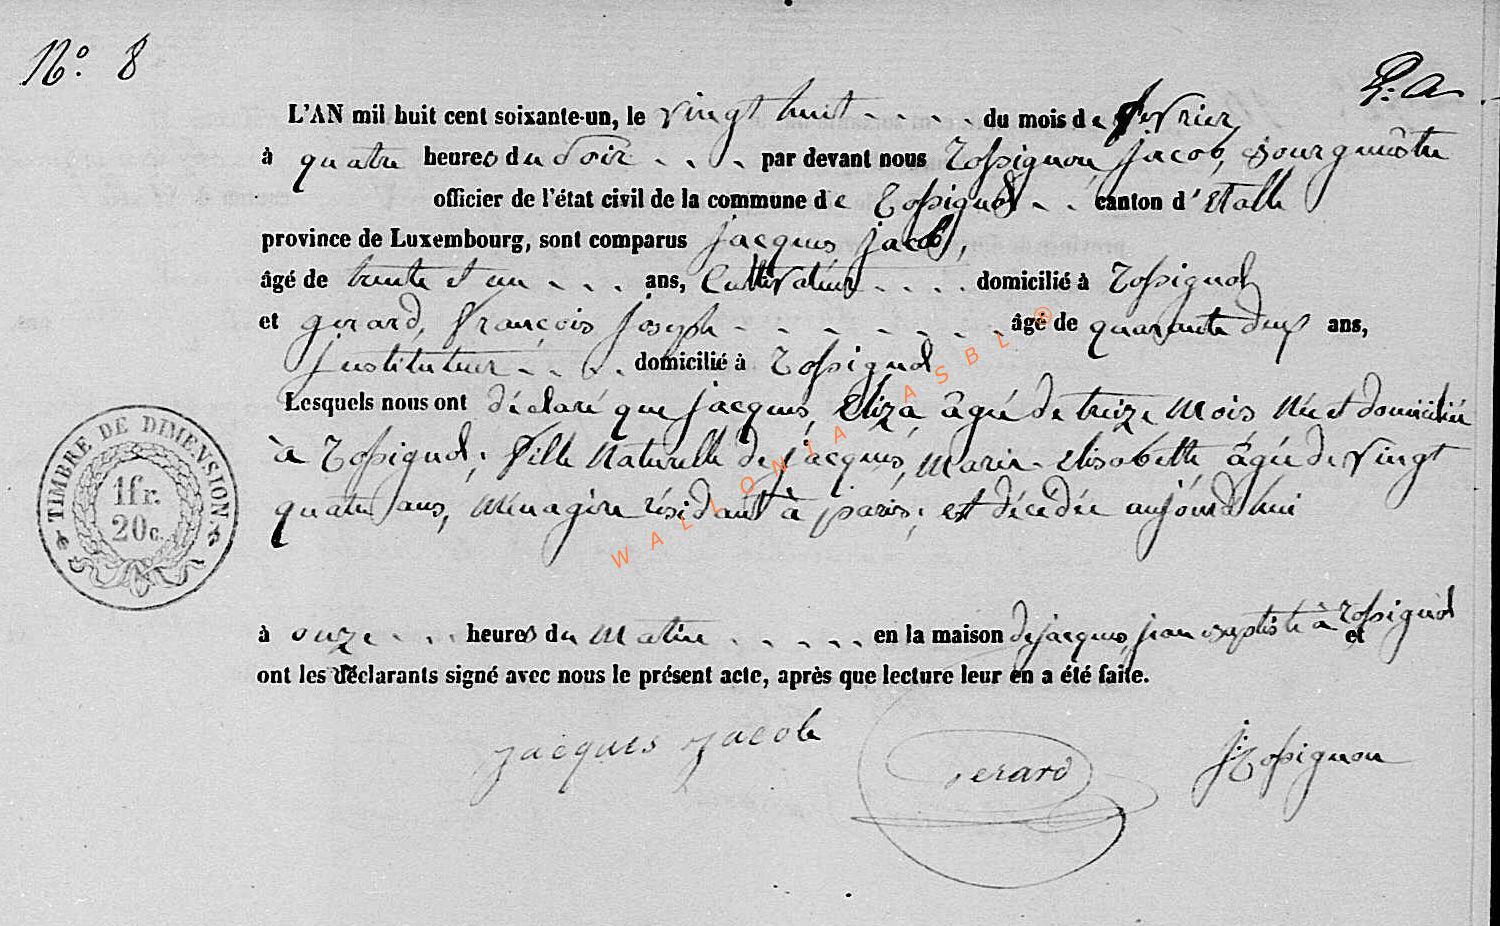 N° 8
L'AN mil huit cent soixante-un, le vingt huit - - - - du mois de fevrier
à quatre heures du Soir - - - par devant nous Rossignon, jacob, Bourgmestre
officier de l'état civil de la commune de Rossignol - - canton d'Etalle
province de Luxembourg, sont comparus jacques, jacob,
âgé de trente et un - - - ans, Cultivateur - - - - domicilié à Rossignol
et gerard, françois joseph - - - - - - - âgé de quarante deux ans,
justituteur - - - - domicilié à Rossignol
Lesquels nous ont déclaré que jacques, Eliza, âgée de treize Mois, Née et domiciliée
à Rossignol, fille Naturelle de jacques, Marie-Elisabette âgée de vingt
quatre ans, Ménagère résidant à paris, est décédée aujourd'hui
à onze - - - heures du Matin - - - - - en la maison de jacques, jean Baptiste à Rossignol et
ont les déclarants signé avec nous le présent acte, après que lecture leur en a été faite.
jacques jacob
Gerard
J. Rossignon
TIMBRE DE DIMENSION
1 fr.
20 c.
WALLONIA ASBL ®